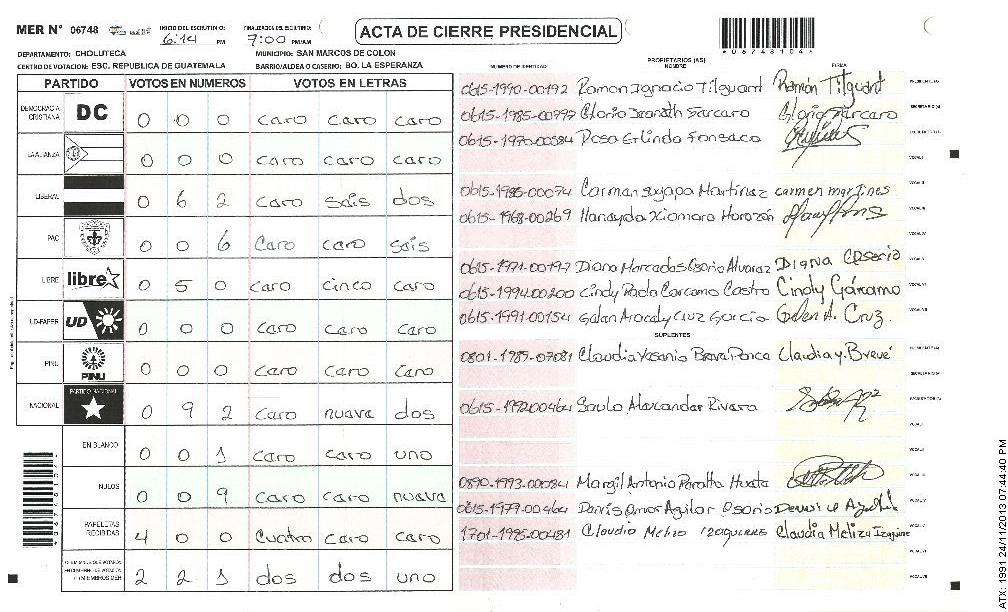 MER N° 06748 INICIO DEL ESCRUTINIO: 6:14 PM FINALIZACION DEL ESCRUTINIO: 7:00 PM/AM
ACTA DE CIERRE PRESIDENCIAL
*06748104*
DEPARTAMENTO: CHOLUTECA MUNICIPIO: SAN MARCOS DE COLON
CENTRO DE VOTACION: ESC. REPUBLICA DE GUATEMALA BARRIO/ALDEA O CASERIO: BO. LA ESPERANZA
PARTIDO VOTOS EN NUMEROS VOTOS EN LETRAS
DEMOCRACIA CRISTIANA DC 0 0 0 caro caro caro
LA ALIANZA 0 0 0 caro caro caro
LIBERAL 0 6 2 caro sais dos
PAC 0 0 6 Caro caro sais
LIBRE libre 0 5 0 caro cinco caro
UD-FAPER UD 0 0 0 caro caro caro
PINU PINU 0 0 0 caro caro caro
NACIONAL PARTIDO NACIONAL 0 9 2 caro nuava dos
EN BLANCO 0 0 1 caro caro uno
NULOS 0 0 9 caro caro nuava
PAPELETAS RECIBIDAS 4 0 0 Cuatro caro caro
2 2 1 dos dos uno
NUMERO DE IDENTIDAD PROPIETARIOS (AS) NOMBRE FIRMA
0615-1990-00192 Ramon Ignacio Tilguant Ramón Tilguant
0615-1985-00797
0615-1970-00584 Rosa Erlinda Fonsaca
0615-1986-00074 Carman suyapa Martinaz carmen martines
0615-1968-00269 Xiomara
0615-1971-00197 Diana Marcadas Osorio Alvaraz Diana Osorio
0615-1994-00200 Cindy Paola Carcamo Castro Cindy Cárcamo
0615-1991-00154 Galan Aracaly Cruz Garcia Galen A. Cruz.
SUPLENTES
0801-1985-07081 Claudia Yasania Claudia y. Brevé
0615-1992-00464 Saulo Alaxandar Rivara
0890-1993-00084 Margil Antonio Paralta
0615-1979-00464 Danis Omar Aguilar Osorio
1701-1985-00481 Claudia Meliza Izaguirre Claudia Meliza Izaguirre
ATX: 1991 24/11/2013 07:44:40 PM